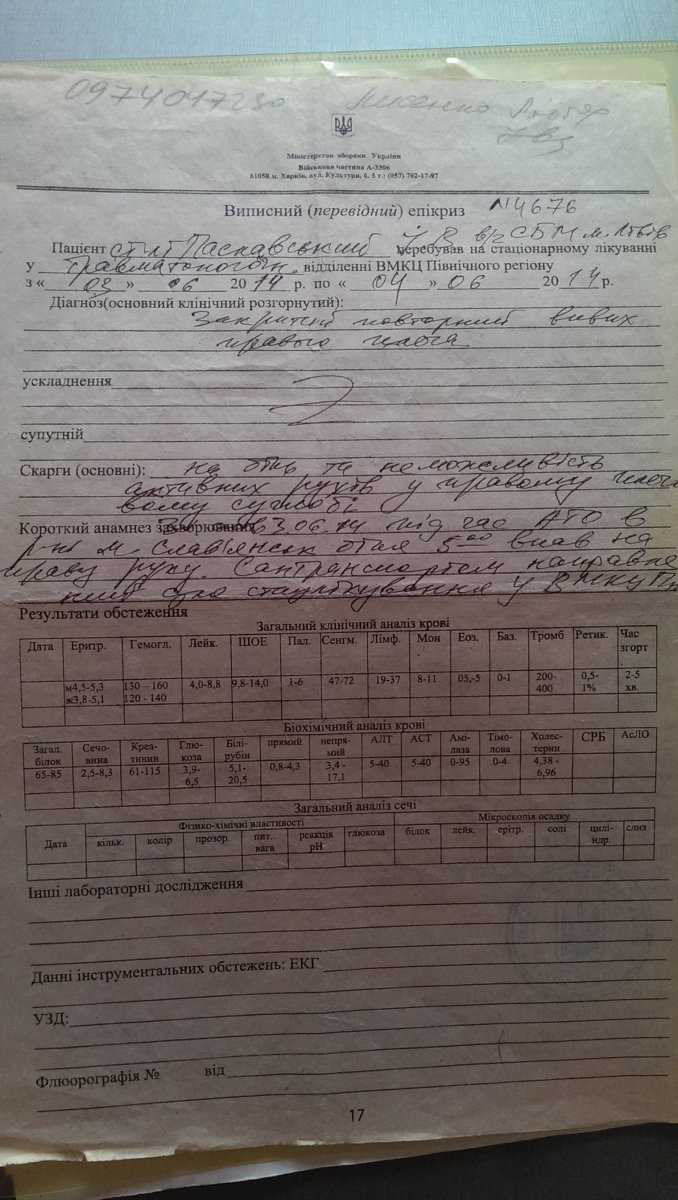 0974017230 Лисенко
Міністерство оборони України
Військова частина А-3306
61058 м. Харків, вул. Культури, б. 5 т.: (057) 702-17-97
Виписний (перевідний) епікриз №4676
Пацієнт ст. л-т Паславський перебував на стаціонарному лікуванні
У травматологічн. відділенні ВМКЦ Північного регіону
з « 03 » 06 2014 р. по « 04 » 06 2014 р.
Діагноз(основний клінічний розгорнутий):
Закритий повторний вивих
правого плеча
ускладнення
супутній
Скарги (основні): на біль та неможливість
активних рухів у правому плечо-
вому суглобі
Короткий анамнез захворювання 3.06.14 під час АТО в
р-ні м. Слав'янськ біля 5-00 впав на
праву руку. Сантранспортом направле-
ний для стацлікування у ВМКЦ
Результати обстеження
Загальний клінічний аналіз крові
Дата Еритр. Гемогл. Лейк. ШОЕ Пал. Сенгм. Лімф. Мон Еоз. Баз. Тромб Ретик. Час згорт
м4,5-5,3 ж3,8-5,1 130 – 160 120 - 140 4,0-8,8 9,8-14,0 1-6 47-72 19-37 8-11 05,-5 0-1 200-400 0,5-1% 2-5 хв.
Біохімічний аналіз крові
Загал. білок Сечо-вина Креа-тинин Глю-коза Білі-рубін прямий непря-мий АЛТ АСТ Амі-лаза Тімо-лова Холес-терин СРБ АсЛО
65-85 2,5-8,3 61-115 3,9-6,5 5,1-20,5 0,8-4,3 3,4 - 17,1 5-40 5-40 0-95 0-4 4,38 - 6,96
Загальний аналіз сечі
Дата Фізико-хімічні властивості Мікроскопія осадку
кільк. колір прозор. пит.. вага реакція рН глюкоза білок лейк. ерітр. солі цилі-ндр. слиз
Інші лабораторні дослідження
Данні інструментальних обстежень: ЕКГ
УЗД:
Флюорографія № від
17